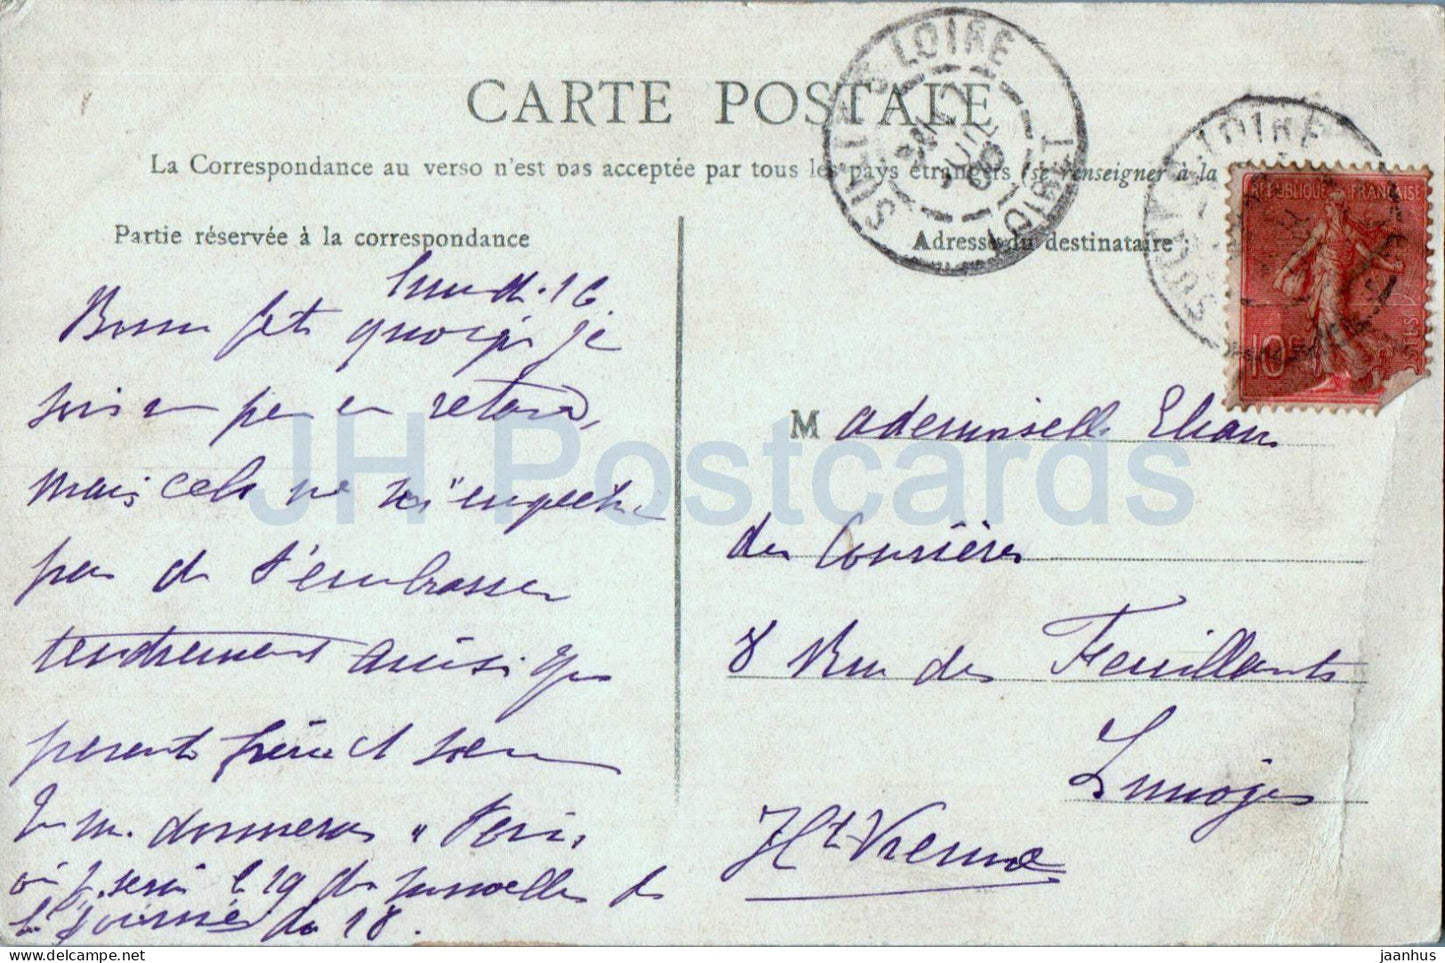 CARTE POSTALE
La Correspondance au verso n'est pas acceptée par tous les pays étrangers (se renseigner à la
Partie réservée à la correspondance
Adresse du destinataire :
SULLY-S-LOIRE
LOIRET
RÉPUBLIQUE FRANÇAISE
10c
POSTES
lundi 16
Bonne fête quoique je
suis un peu en retard,
mais cela ne m'empêche
pas de t'embrasser
tendrement ainsi que
parents frère et soeur
Tu me donneras à Paris,
où je serai le 19 des nouvelles de
la journée du 18.
Mademoiselle Eliane
des Courières
8 Rue des Feuillants
Limoges
Hte Vienne
JH Postcards
jaanhus
hippostcard.com